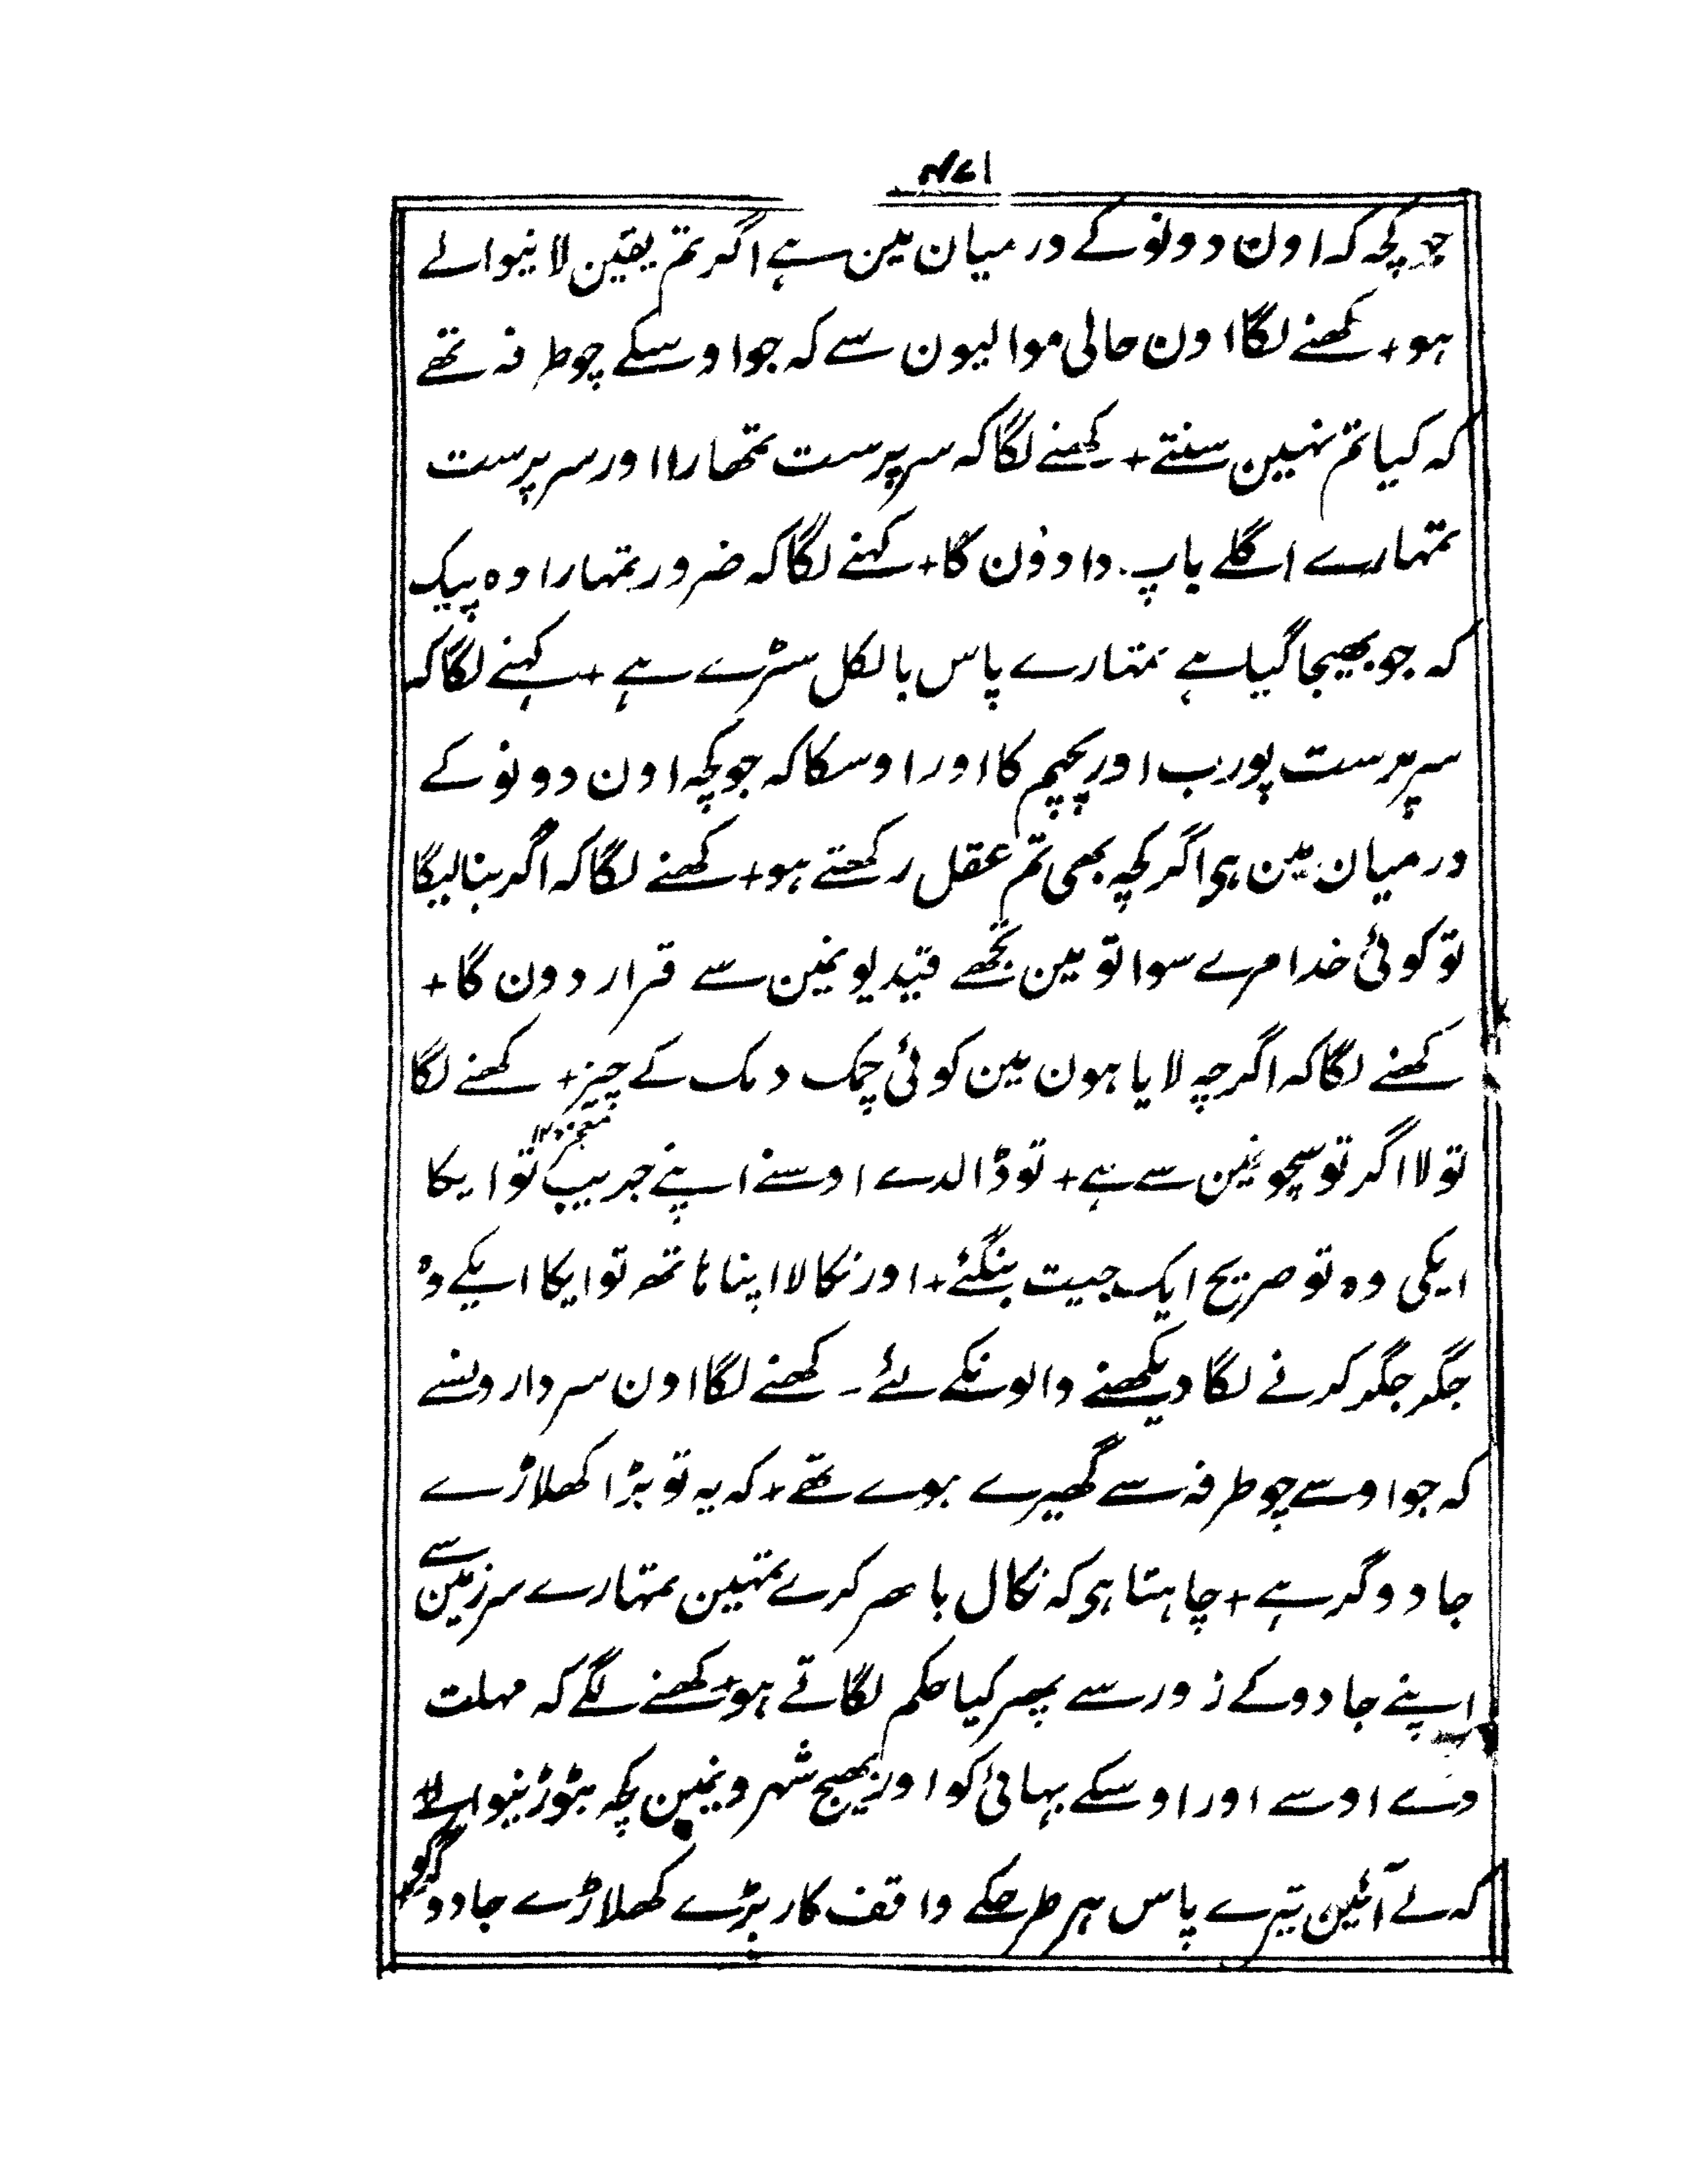 ۱۷۴
جو کچہ کہ اون دونو کے درمیان مین ہے اگر تم یقین لانیوالے
ہو + کھنے لگا اون حالی موالیون سے کہ جو اوسکے چوطرفہ تھے
کہ کیا تم نہین سنتے + کھنے لگا کہ سرپرست تمھارا اور سرپرست
تمہارے اگلے باپ دادؤن گا + کہنے لگا کہ ضرور تمہارا وہ پیک
کہ جو بھیجا گیا ہے تمہارے پاس بالکل سڑے ہے + کہنے لگا کہ
سرپرست پورب اور پچیم کا اور اوسکا کہ جو کچہ اون دونو کے
درمیان مین ہی اگر کچہ بھی تم عقل رکھتے ہو + کھنے لگا کہ اگر بنا لیگا
تو کوئی خدا مرے سوا تو مین تجھے قیدیونمین سے قرار دون گا +
کھنے لگا کہ اگرچہ لایا ہون مین کوئی چمک دمک کے چیز + کھنے لگا
معجزہ ۱۲
تو لا اگر تو سچونمین سے ہے + تو ڈالدے اوسنے اپنے جریب تو ایکا
ایکی وہ تو صریح ایک جیت بنگئے + اور نکالا اپنا ہاتھ تو ایکا ایکے وہ
جگر جگر کرنے لگا دیکھنے والونکے لئے ۔ کھنے لگا اون سردارونسے
کہ جو اوسے چوطرفہ سے گھیرے ہوے تھے + کہ یہ تو بڑا کھلاڑے
جادوگر ہے + چاہتا ہی کہ نکال باھر کرے تمہین تمہارے سرزمین سے
اپنے جادو کے زور سے پھر کیا حکم لگاتے ہو + کھنے لگے کہ مہلت
دے اوسے اور اوسکے بہائی کو اور بھیج شہرونمین کچہ بٹوڑنیوالے
کہ لے آئین تیرے پاس ہر طرحکے واقف کار بڑے کھلاڑے جادوگرو